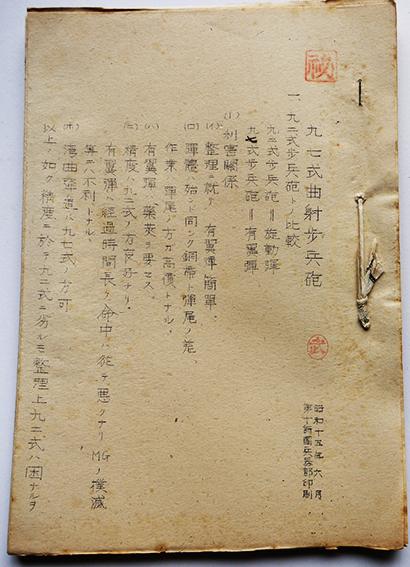 秘
九七式曲射歩兵砲
一、九二式歩兵砲トノ比較
九二式歩兵砲＝旋動弾
九七式歩兵砲＝有翼弾
(1) 利害関係
(イ) 整理ニ就テ 有翼弾簡単、
(ロ) 弾體ハ殆ンド同ジク銅帯ト弾尾ノ差、
作業ハ弾尾ノ方ガ高價トナル、
(ハ) 有翼弾ハ薬莢ヲ要セス、
(ニ) 精度ハ九二式ノ方良好ナリ、
有翼弾ハ経過時間長ク命中ハ従テ悪クナリMGノ撲滅
等ニハ不利トナル、
(ホ) 湾曲弾道ハ九七式ノ方可
以上ノ如ク精度ニ於テ九二式ニ劣ルモ整理上九二式ハ困ナルヲ
昭和十五年六月
第十師團兵器部印刷